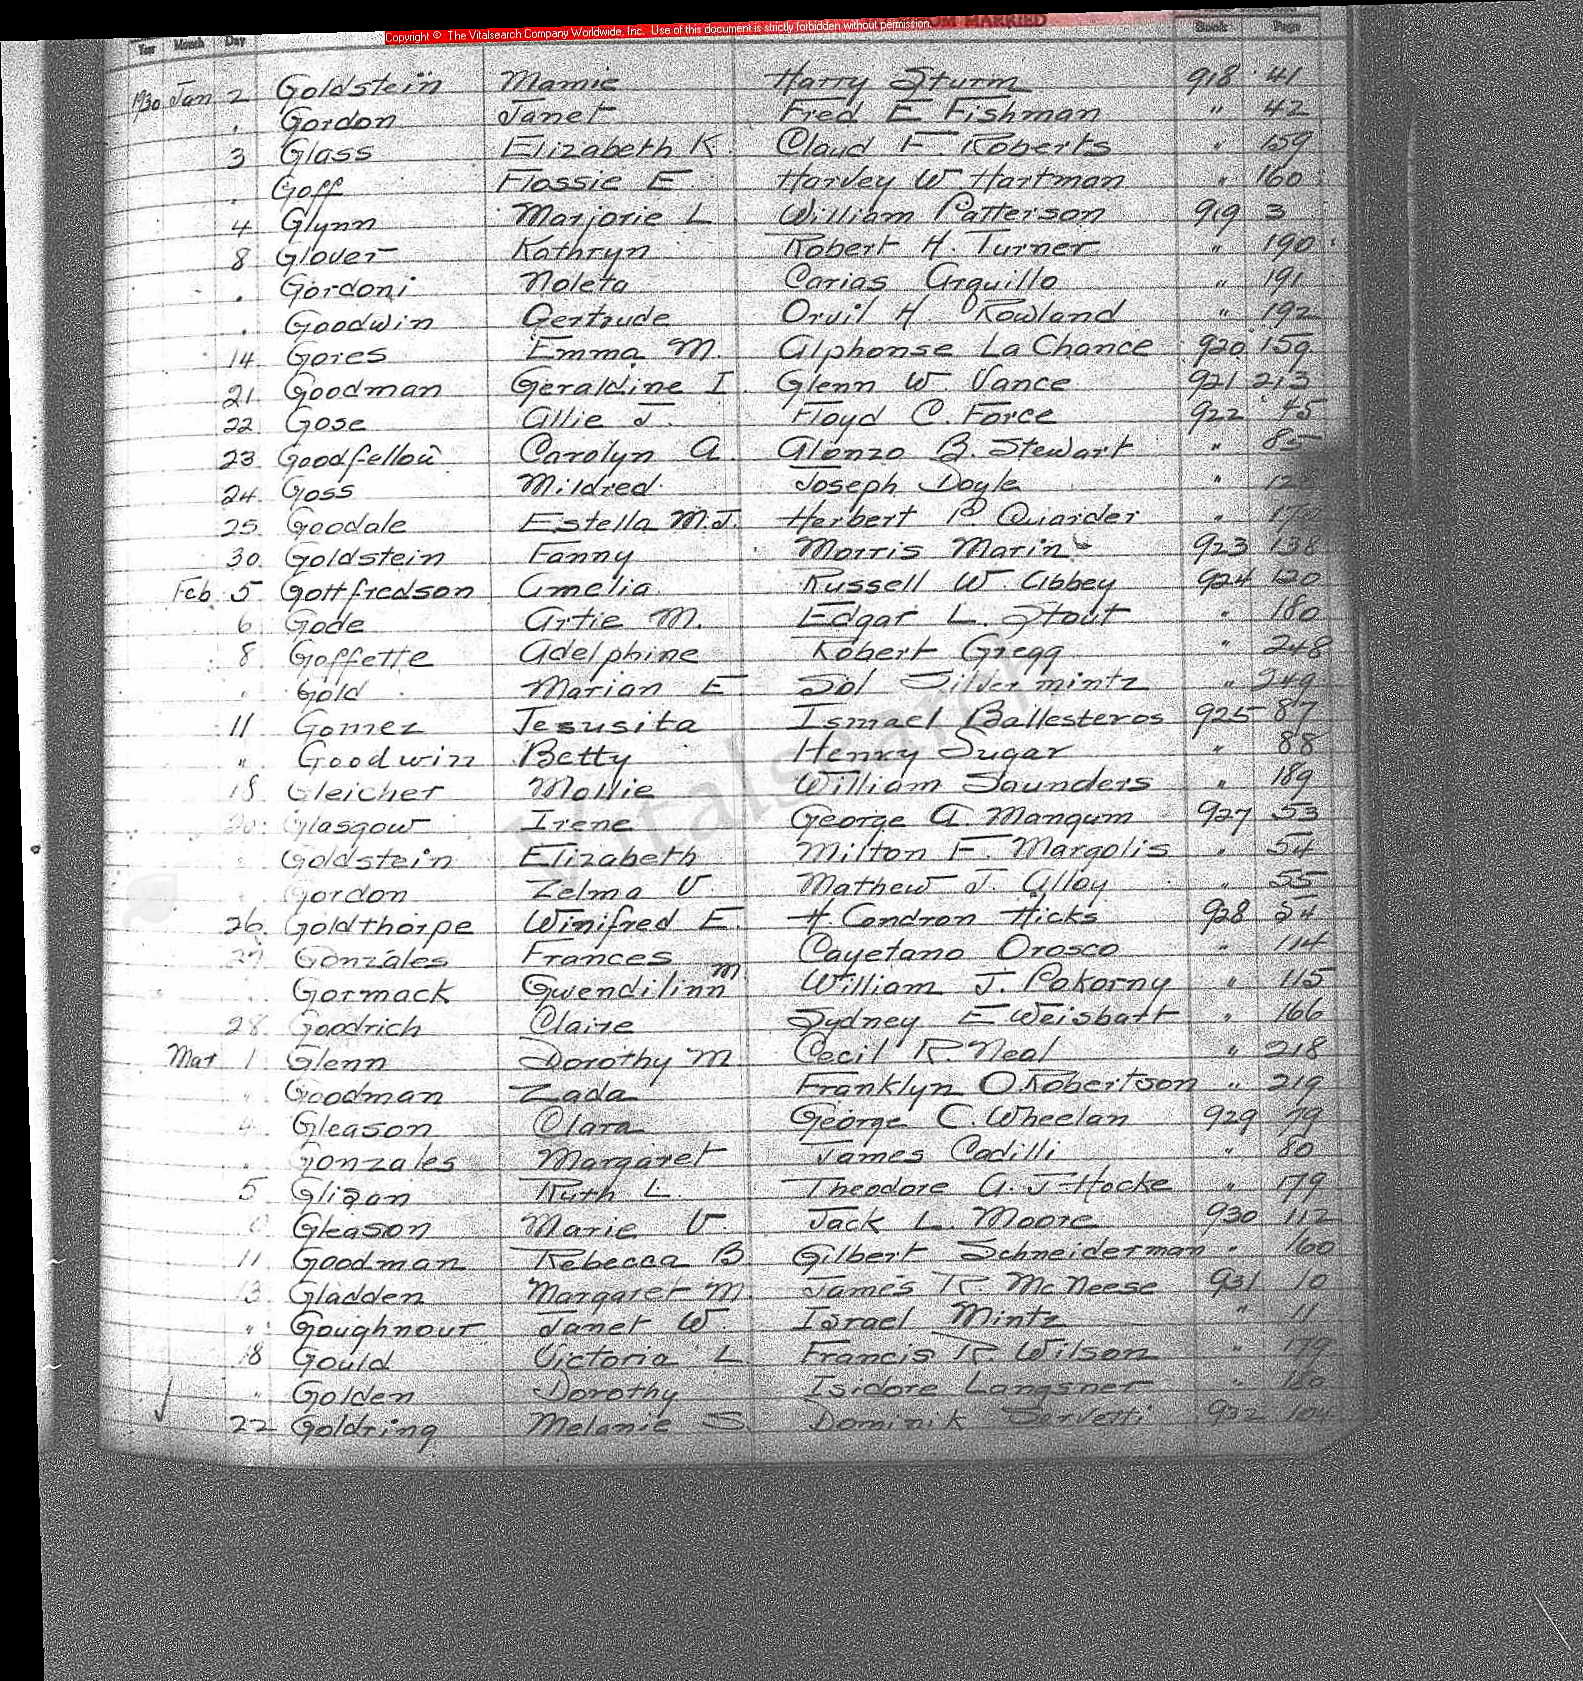 Copyright © The Vitalsearch Company Worldwide, Inc. Use of this document is strictly forbidden without permission. OM MARRIED
Year Month Day Book Page
1930 Jan 2 Goldstein Mamie Harry Sturm 918 41
" Gordon Janet Fred E Fishman " 42
3 Glass Elizabeth K. Claud F. Roberts " 159
" Goff Flossie E. Harvey W Hartman " 160
4 Glynn Marjorie L William Patterson 919 3
8 Glover Kathryn Robert H. Turner " 190
" Gordoni Noleta Carias Arquillo " 191
" Goodwin Gertrude Orvil H. Rowland " 192
14 Gores Emma M. Alphonse La Chance 920 159
21 Goodman Geraldine I. Glenn W. Vance 921 213
22 Gose Allie J. Floyd C. Force 922 45
23 Goodfellow Carolyn A. Alonzo B. Stewart " 85
24 Goss Mildred Joseph Doyle "
25 Goodale Estella M.J. Herbert P. Quarder "
30 Goldstein Fanny Morris Marin 923 138
Feb 5 Gottfredson Amelia Russell W. Abbey 924 120
6 Gode Artie M. Edgar L. Stout " 180
8 Goffette Adelphine Robert Gregg " 248
" Gold Marian E Sol Silvermintz " 249
11 Gomez Jesusita Ismael Ballesteros 925 87
" Goodwin Betty Henry Sugar " 88
18 Gleicher Mollie William Saunders " 189
20 Glasgow Irene George A Mangum 927 53
" Goldstein Elizabeth Milton F. Margolis " 54
" Gordon Zelma V. Mathew J. Alloy " 55
26 Goldthorpe Winifred E. H Condron Hicks 928 54
27 Gonzales Frances Cayetano Orosco " 114
" Gormack Gwendilinn M. William J. Pokorny " 115
28 Goodrich Claire Sydney E Weisbatt " 166
Mar 1 Glenn Dorothy M. Cecil R. Neal " 218
" Goodman Zada Franklyn O. Robertson " 219
4 Gleason Clara George C. Wheelan 929 79
" Gonzales Margaret James Cadilli " 80
5 Gligan Ruth L. Theodore A. J. Hocke " 179
Gleason Marie V. Jack L. Moore 930 112
11 Goodman Rebecca B. Gilbert Schneiderman " 160
13 Gladden Margaret M. James R. McNeese 931 10
" Goughnour Janet W. Israel Mintz " 11
18 Gould Victoria L. Francis R. Wilson " 179
" Golden Dorothy Isidore Langsner "
22 Goldring Melanie S. Dominik Servetti 932 104
Vitalsearch